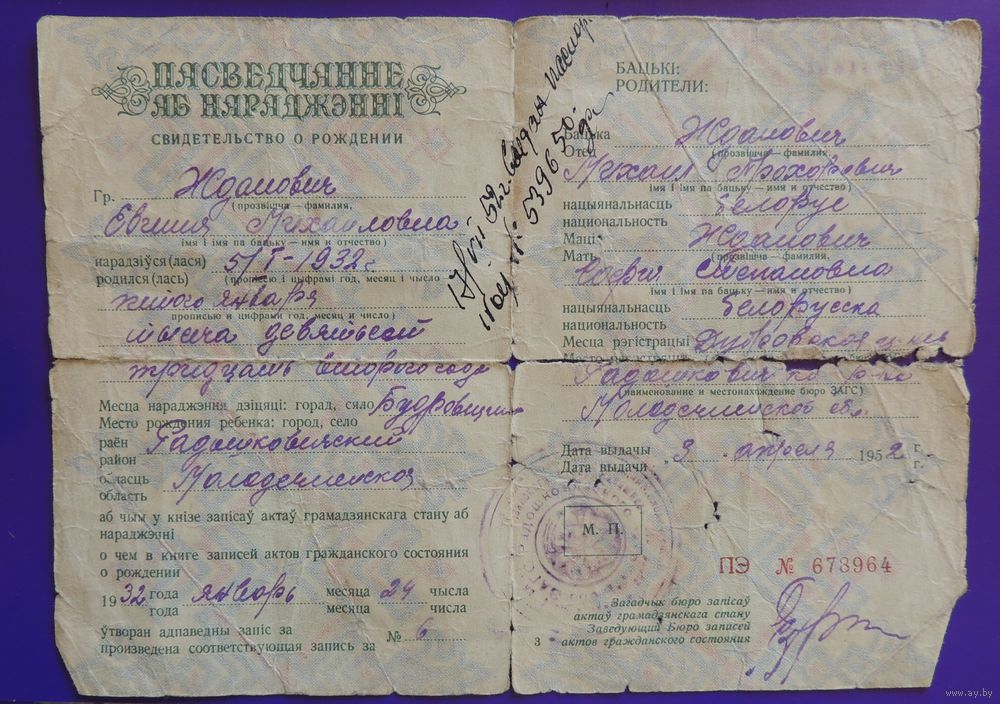 ПАСВЕДЧАННЕ
АБ НАРАДЖЭННІ
СВИДЕТЕЛЬСТВО О РОЖДЕНИИ
Гр. Жданович
(прозвішча — фамилия,
Евгения Михайловна
імя і імя па бацьку — имя и отчество)
нарадзіўся(лася)
родился(лась) 5/I-1932г
(прописью и цифрами год, месяц и число)
пятого января
прописью и цифрами год, месяц и число)
тысяча девятьсот
тридцать второго года
Месца нараджэння дзіцяці: горад, сяло
Место рождения ребенка: город, село
раён Радошковичский
район
обласць Молодечненская
область
аб чым у кнізе запісаў актаў грамадзянскага стану аб
нараджэнні
о чем в книге записей актов гражданского состояния
о рождении
1932 года январь месяца 24 чысла
года месяца числа
ўтворан адпаведны запіс за
произведена соответствующая запись за № 6
выдан
№ 539650
БАЦЬКІ:
РОДИТЕЛИ:
Бацька
Отец Жданович
(прозвішча — фамилия,
Михаил Прохорович
імя і імя па бацьку — имя и отчество)
нацыянальнасць Белорус
национальность
Маці
Мать Жданович
(прозвішча — фамилия,
Софья Степановна
імя і імя па бацьку — имя и отчество)
нацыянальнасць Белорусска
национальность
Месца рэгістрацыі
Место регистрации
(наименование и местонахождение бюро ЗАГС)
Молодечненской обл.
Дата выдачы
Дата выдачи 3 апреля 1952 г.
г.
М. П.
ПЭ № 673964
Загадчык бюро запісаў
актаў грамадзянскага стану
Заведующий Бюро записей
3 актов гражданского состояния
www.ay.by